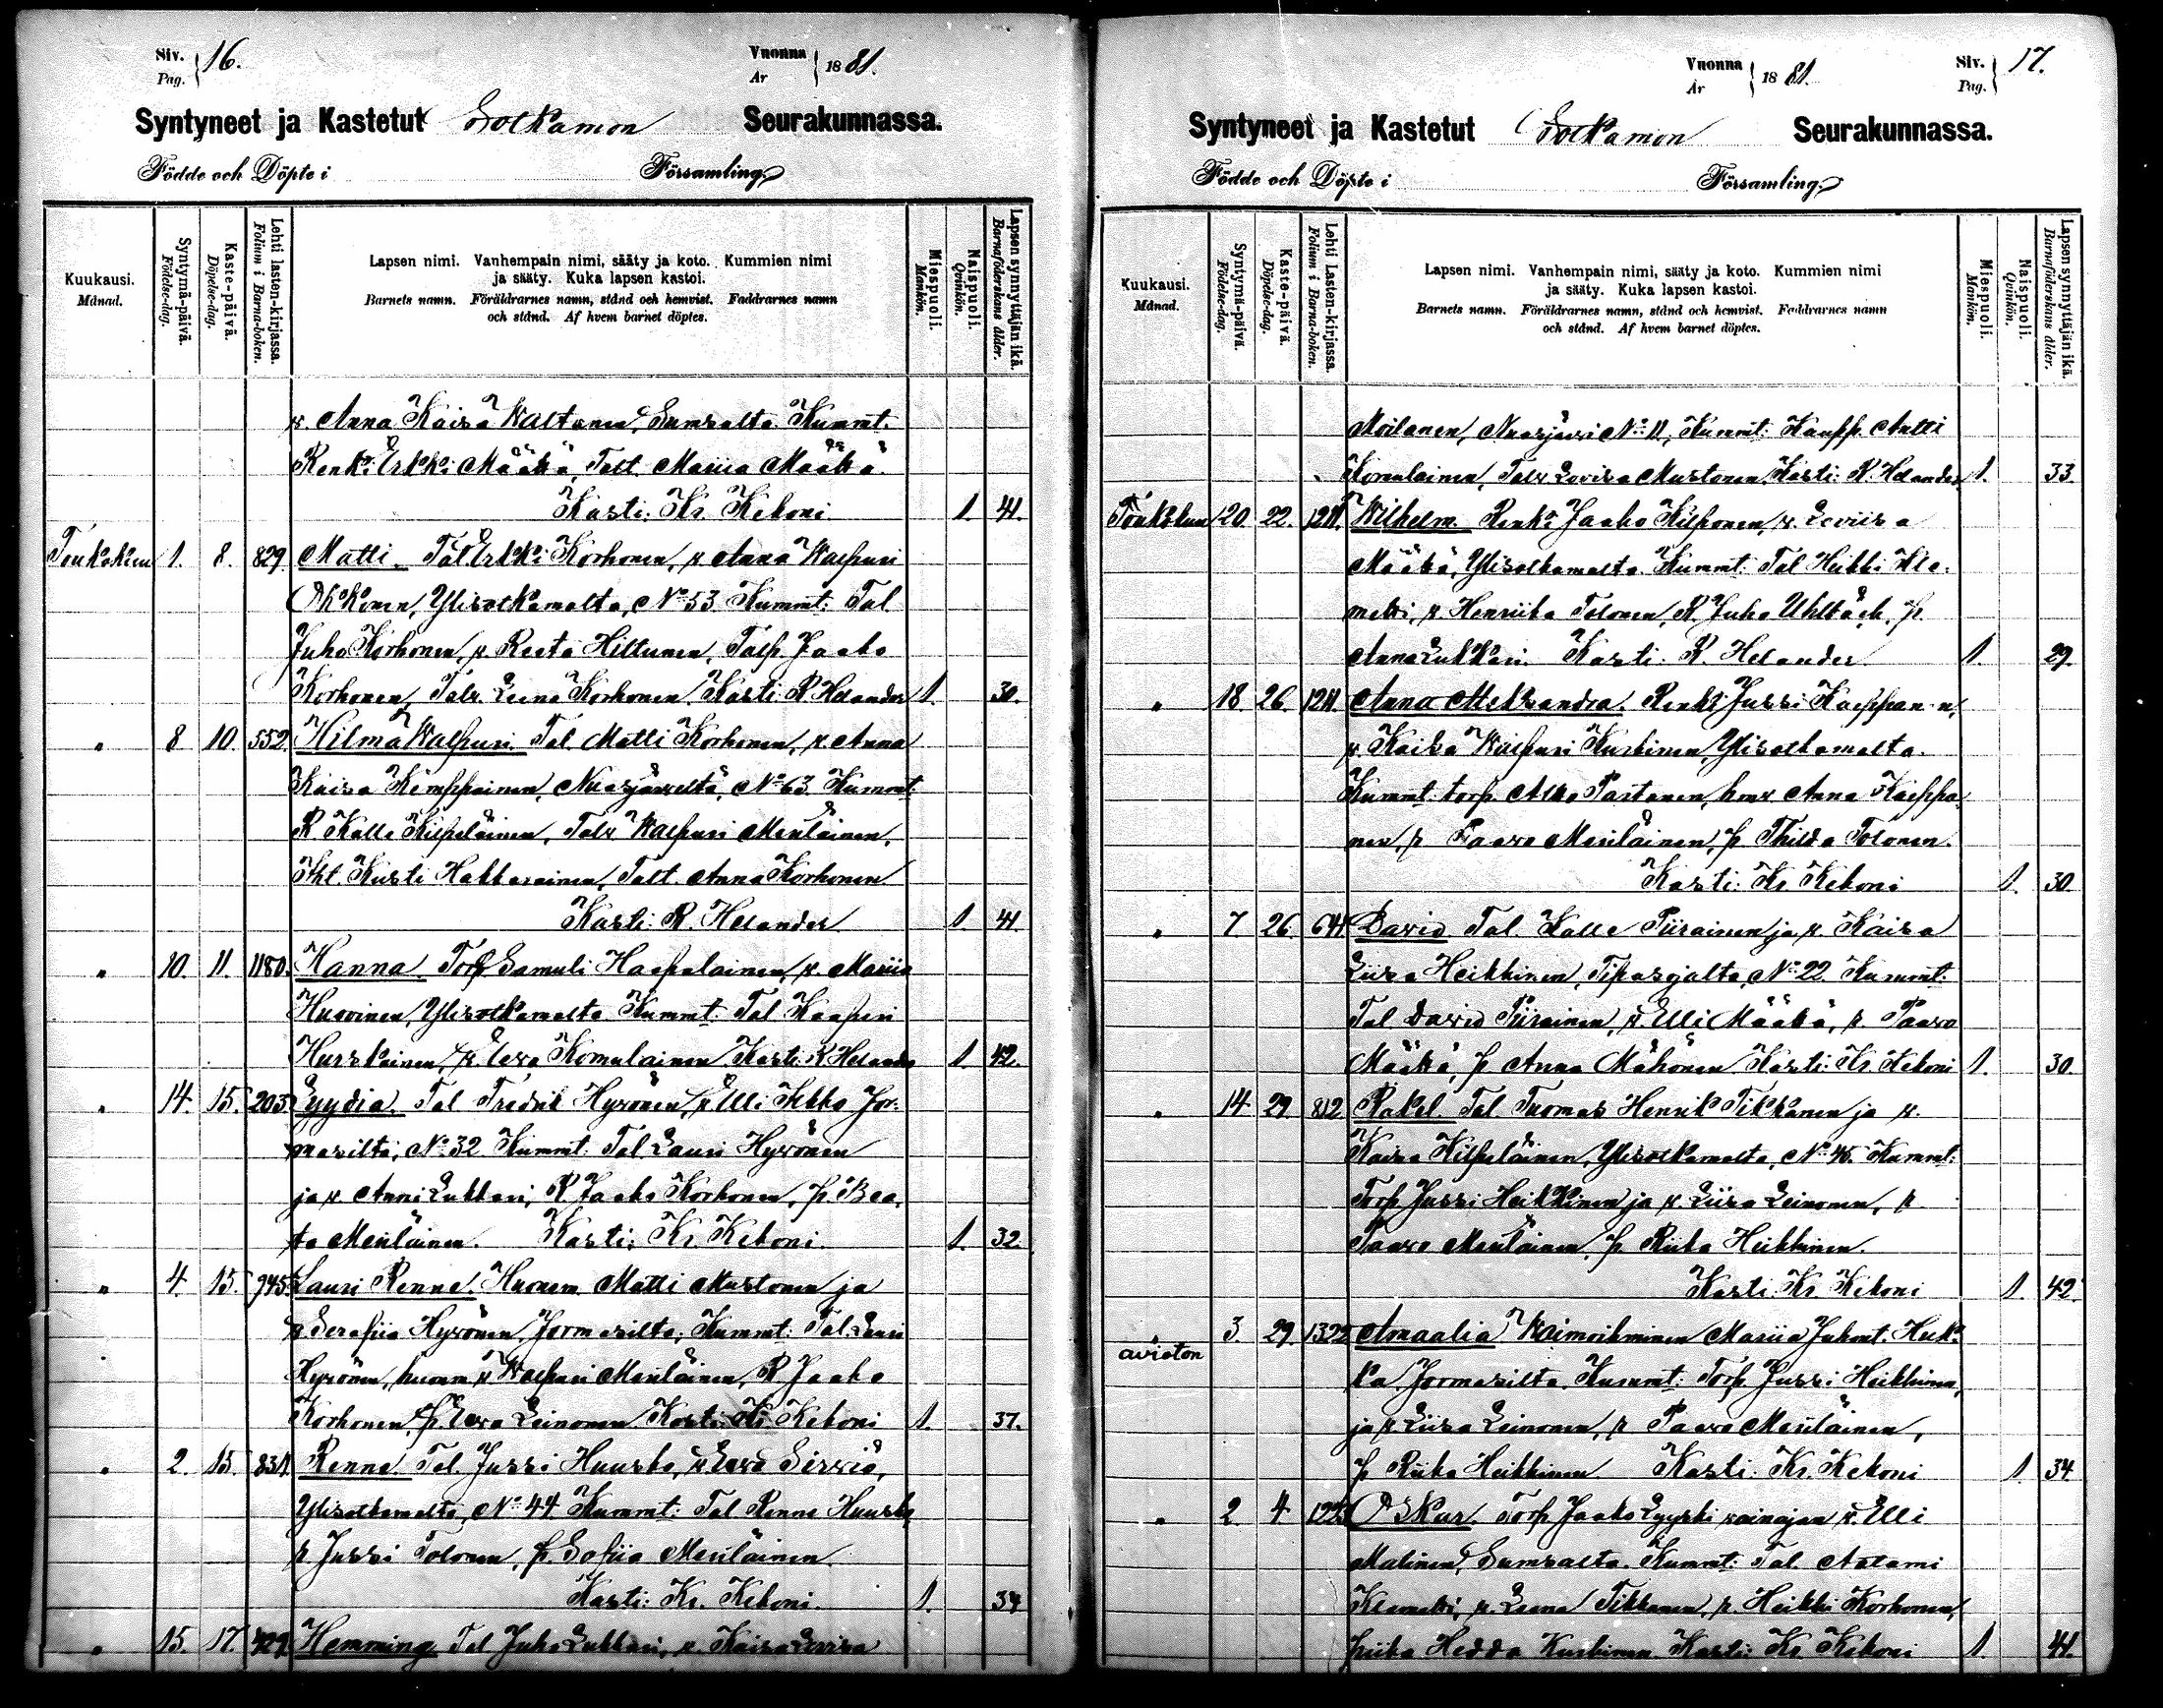 Siv. Pag. 16.
Vuonna År 1881.
Syntyneet ja Kastetut Sotkamon Seurakunnassa.
Födde och Döpte i Församling.
Kuukausi. Månad.
Syntymä-päivä. Födelse-dag.
Kaste-päivä. Döpelse-dag.
Lehti lasten-kirjassa. Folium i Barna-boken.
Lapsen nimi. Vanhempain nimi, sääty ja koto. Kummien nimi
ja sääty. Kuka lapsen kastoi.
Barnets namn. Föräldrarnes namn, stånd och hemvist. Faddrarnes namn
och stånd. Af hvem barnet döptes.
Miespuoli. Mankön.
Naispuoli. Qvinkön.
Lapsen synnyttäjän ikä. Barnaföderskans ålder.
v. Anna Kaisa Waltanen, Sumsalta. Kummt.
Renki Erkki Määttä, Talt. Maria Määttä.
Kasti: Kr. Kekoni. 1. 41.
Toukokuu 1. 8. 829. Matti. Tal. Erkki Korhonen, v. Anna Walpuri
Okkonen, Ylisotkamolta, No 53. Kummt: Tal
Juho Korhonen, v. Reeta Hiltunen, Talp. Jaako
Korhonen, Talv. Leena Korhonen. Kasti: R. Helander 1. 30.
" 8 10 552 Hilma Walpuri. Tal. Matti Korhonen, v. Anna
Kaisa Kemppainen, Nuasjärveltä, No 63. Kummt:
R. Kalle Kilpeläinen, Talv. Walpuri Meriläinen,
Itt. Kusti Hakkarainen, Talt. Anna Korhonen.
Kasti: R. Helander 1. 41
" 10. 11. 1180. Hanna. Torp. Samuli Haapalainen, v. Maria
Huovinen, Ylisotkamolta. Kummt: Tal. Kaapuri
Hurskainen, v. Eeva Komulainen. Kasti: R. Helander 1. 42.
" 14. 15. 203 Lyydia. Tal. Fredrik Hyvönen, v. Elli Sirkko Jor-
masilta, No 32. Kummt: Tal. Lauri Hyvönen
ja v. Anni Lukkari, R. Jaako Korhonen, p. Bea-
ta Meriläinen. Kasti: Kr. Kekoni. 1. 32.
" 4. 15. 945. Lauri Renne. Huonem. Matti Mustonen ja
v. Serafiia Hyvönen, Jormasilta, Kummt: Tal. Lauri
Hyvönen, huonm. v. Walpuri Meriläinen, R. Jaako
Korhonen, p. Eeva Leinonen. Kasti: Kr. Kekoni 1. 37.
" 2. 15. 831. Renne. Tal. Jussi Huusko, v. Eeva Sirviö,
Ylisotkamolta, No 44. Kummt: Tal. Renne Huusko,
r. Jussi Tolonen, p. Sofiia Meriläinen.
Kasti: Kr. Kekoni. 1. 34
" 15. 17. Hemming. Tal. Juho Lukkari, v. Kaisa Loviisa
Vuonna År 1881.
Siv. Pag. 17.
Syntyneet ja Kastetut Sotkamon Seurakunnassa.
Födde och Döpte i Församling.
Kuukausi. Månad.
Syntymä-päivä. Födelse-dag.
Kaste-päivä. Döpelse-dag.
Lehti Lasten-kirjassa. Folium i Barna-boken.
Lapsen nimi. Vanhempain nimi, sääty ja koto. Kummien nimi
ja sääty. Kuka lapsen kastoi.
Barnets namn. Föräldrarnes namn, stånd och hemvist. Faddrarnes namn
och stånd. Af hvem barnet döptes.
Miespuoli. Mankön.
Naispuoli. Qvinkön.
Lapsen synnyttäjän ikä. Barnaföderskans ålder.
Moilanen, Nuasjärvi No 11, Kummt: Kaupp. Antti
Komulainen, Talv. Lovisa Mustonen. Kasti: R. Helander. 1. 33.
Toukokuu 20. 22. 1211. Wilhelm. Renki Jaako Kilponen, v. Loviisa
Määttä, Ylisotkamolta. Kummt: Tal. Heikki Kle-
metti, v. Henriika Tolonen, R. Juho Uhlbäck, p.
Anna Lukkari. Kasti: R. Helander. 1. 29.
" 18 26. 1211. Anna Aleksandra. Renki Jussi Kaappanen,
v. Kaisa Walpuri Kurkinen, Ylisotkamolta.
Kummt. torp. Asko Partanen, hmv. Anna Kaappa-
nen, r. Paavo Meriläinen, p. Thilda Tolonen.
Kasti: Kr. Kekoni 1. 30.
" 7. 26. 641 David. Tal. Kalle Piirainen ja v. Kaisa
Liisa Heikkinen, Tipasojalta, No 22. Kummt:
Tal. David Piirainen, v. Elli Määttä, r. Paavo
Määttä, p. Anna Mähönen. Kasti: Kr. Kekoni 1. 30.
" 14 29. 812 Rakel. Tal. Tuomas Henrik Tikkanen ja v.
Kaisa Kilpeläinen, Ylisotkamolta, No 45. Kummt:
Torp. Jussi Heikkinen ja v. Liisa Leinonen, r.
Paavo Meriläinen, p. Riika Heikkinen.
Kasti: Kr. Kekoni 1. 42.
" avioton 3. 29. 1322 Amaalia. Waimoihminen Mariia Juhont. Huk-
ka, Jormasilta. Kummt: Torp. Jussi Heikkinen,
ja v. Liisa Leinonen, r. Paavo Meriläinen,
p. Riika Heikkinen. Kasti: Kr. Kekoni 1. 34.
" 2. 4. Oskar. Torp. Jaako Lyyski vainajan v. Elli
Malinen, Sumsalta. Kummt: Tal. Aatami
Klemetti, v. Leena Tikkanen, r. Heikki Korhonen,
piika Hedda Kurkinen. Kasti: Kr. Kekoni 1. 41.